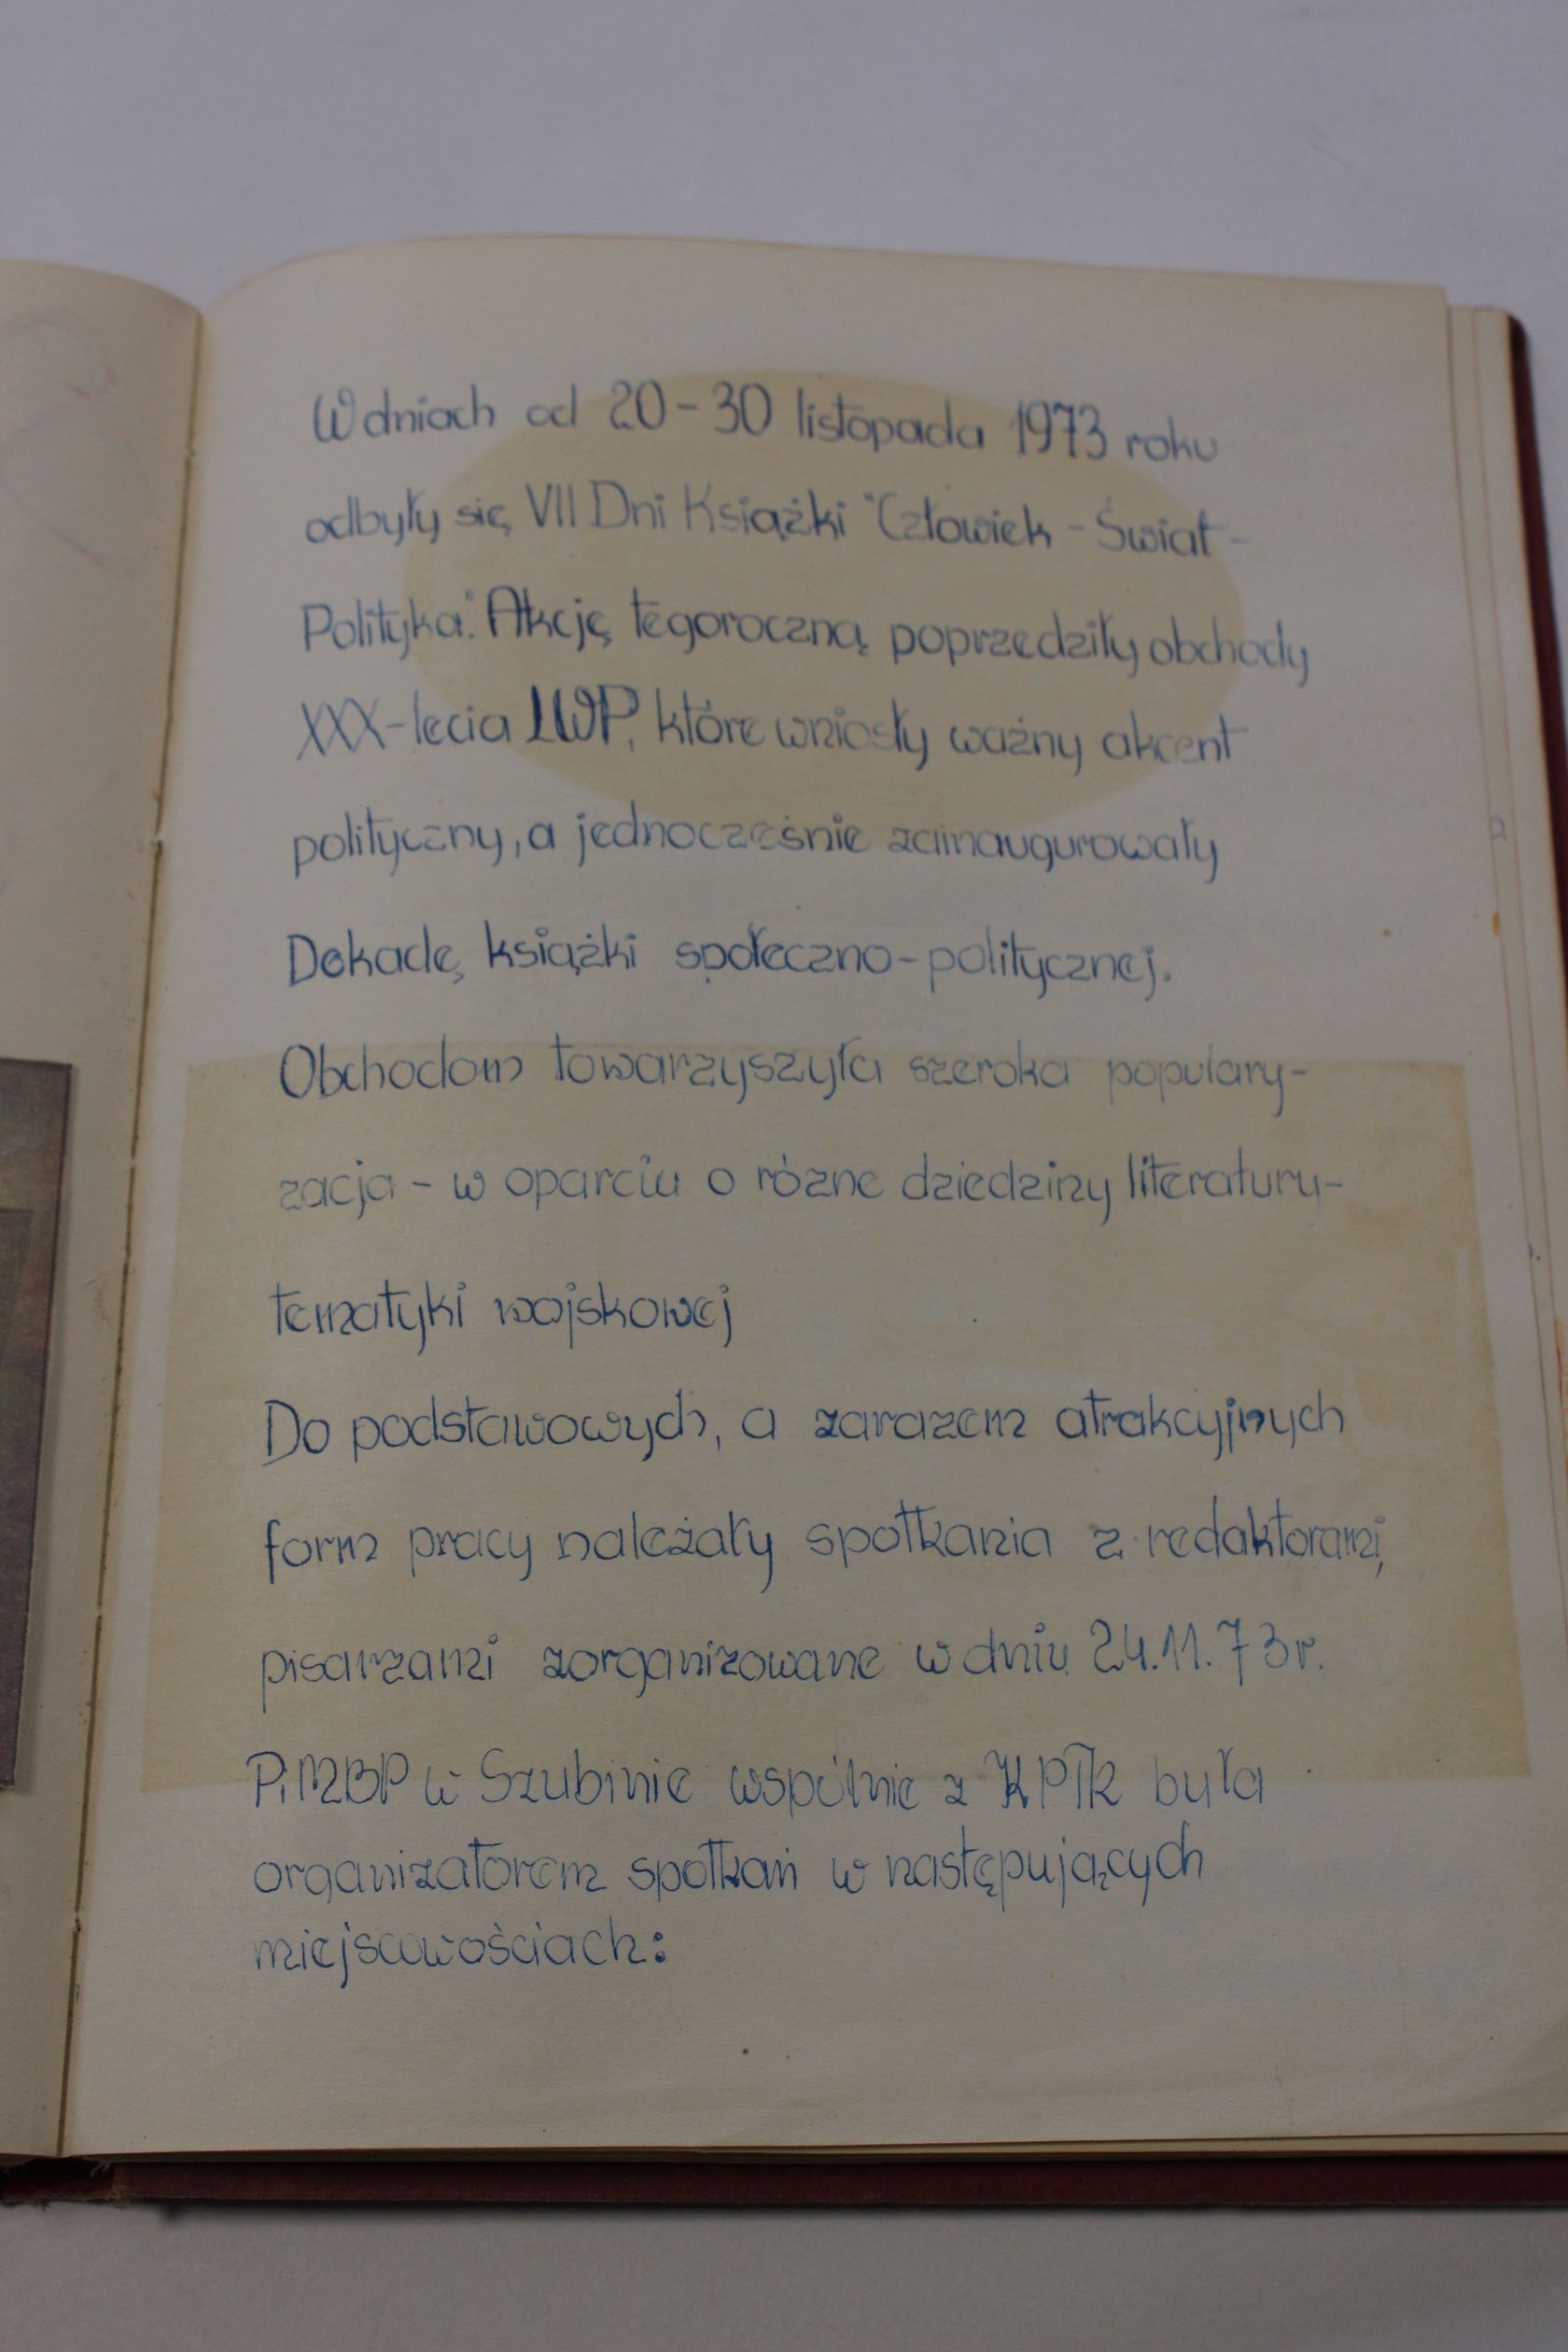 W dniach od 20-30 listopada 1973 roku
odbyły się VII Dni Książki "Człowiek - Świat -
Polityka." Akcję tegoroczną poprzedziły obchody
XXX-lecia LWP, które wniosły ważny akcent
polityczny, a jednocześnie zainaugurowały
Dekadę książki społeczno-politycznej.
Obchodom towarzyszyła szeroka populary-
zacja - w oparciu o różne dziedziny literatury-
tematyki wojskowej
Do podstawowych, a zarazem atrakcyjnych
form pracy należały spotkania z redaktorami,
pisarzami zorganizowane w dniu 24.11.73r.
PiMBP w Szubinie wspólnie z KPTK była
organizatorem spotkań w następujących
miejscowościach: